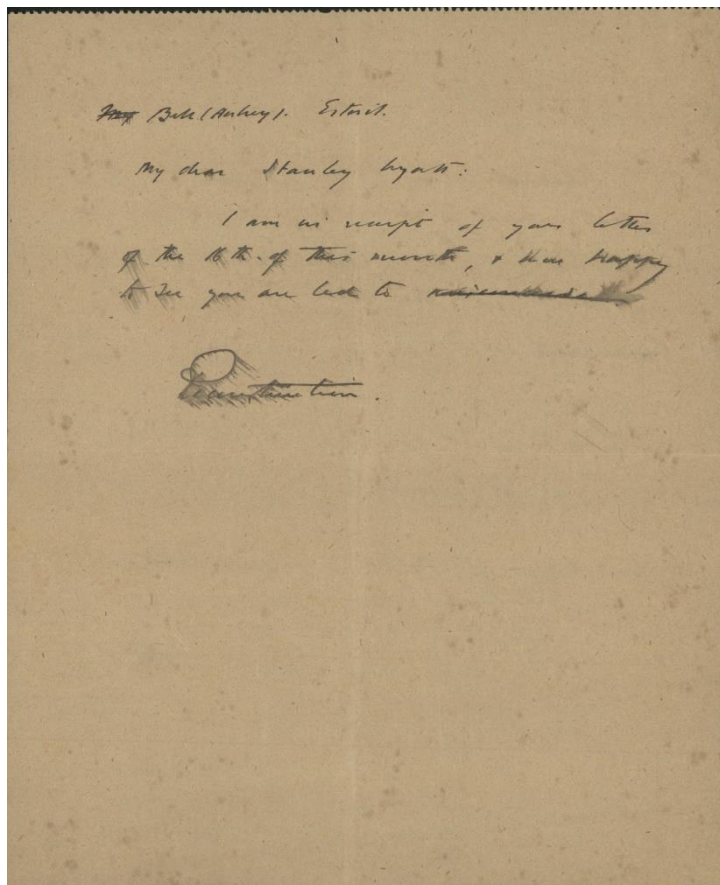 Bell (Aubrey). Estoril.
My dear Stanley Wyatt:
I am in receipt of your letter
of the 16th. of this month, & am happy
to see you are led to